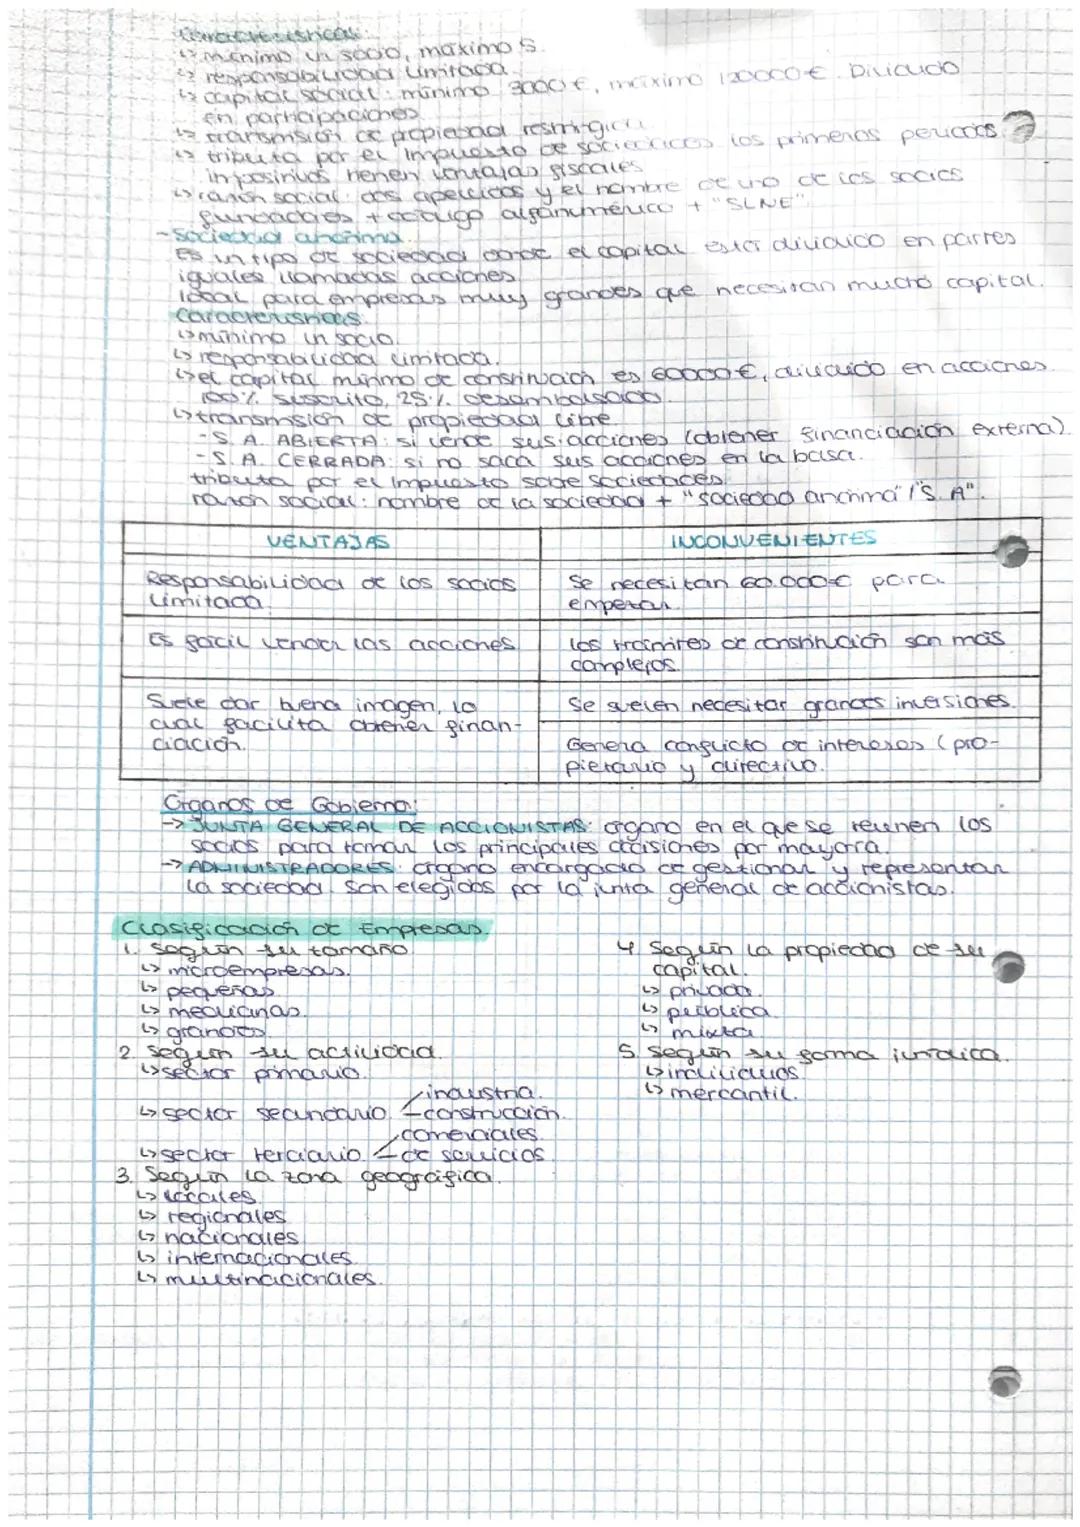 Características:
↳ mínimo un socio, máximo 5.
↳ responsabilidad limitada.
↳ capital social: mínimo 3000€, máximo 120000€. Dividido
en participaciones.
↳ transmisión de propiedad restringida
↳ tributa por el impuesto de sociedades los primeros periodos
impositivos tienen ventajas fiscales
↳ razón social: dos apellidos y el nombre de uno de los socios
fundadores + código alfanumérico + "SLNE".
- Sociedad anónima.
Es un tipo de sociedad donde el capital está dividido en partes
iguales llamadas acciones.
Ideal para empresas muy grandes que necesitan mucho capital.
Características:
↳ mínimo un socio.
↳ responsabilidad limitada.
↳ el capital mínimo de constitución es 60000€, dividido en acciones.
100% suscrito, 25% desembolsado.
↳ transmisión de propiedad libre.
- S.A. ABIERTA: si vende sus acciones (obtener financiación externa).
- S.A. CERRADA: si no saca sus acciones en la bolsa.
tributa por el impuesto sobre sociedades.
razón social: nombre de la sociedad + "sociedad anónima"/"S.A".
VENTAJAS
INCONVENIENTES
Responsabilidad de los socios
limitada.
Se necesitan 60.000€ para
empezar.
Es fácil vender las acciones.
Los trámites de constitución son más
complejos.
Suele dar buena imagen, lo
cual facilita obtener finan-
ciación.
Se suelen necesitar grandes inversiones.
Genera conflicto de intereses (pro-
pietario y directivo.
Órganos de Gobierno:
→ JUNTA GENERAL DE ACCIONISTAS: órgano en el que se reúnen los
socios para tomar los principales decisiones por mayoría.
→ ADMINISTRADORES: órgano encargado de gestionar y representar
la sociedad. Son elegidos por la junta general de accionistas.
Clasificación de Empresas.
1. Según su tamaño.
↳ microempresas.
↳ pequeñas
↳ medianas.
↳ grandes
2. Según su actividad.
↳ sector primario.
↳ sector secundario
industria.
construcción.
↳ sector terciario
comerciales.
de servicios.
3. Según la zona geográfica.
↳ locales
↳ regionales
↳ nacionales
↳ internacionales.
↳ multinacionales.
4 Según la propiedad de su
capital.
↳ privada.
↳ pública
↳ mixta
5. Según su forma jurídica.
↳ individuos.
↳ mercantil.